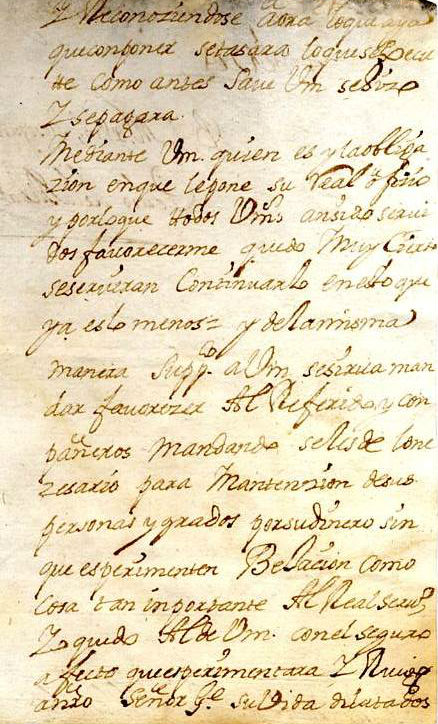 Y Reconoziendose aora loque aya
que conponer se tasara loquesele
te como antes save Vm seSirva
Y sepagara.
Mediante Vm. quien es y la obliga
zion enque lepone su Real ofizio
y porloque todos Vms an sido servi
dos favorecerme quedo Muy Cierto
seserviran Continuarlo enesto que
ya es lo menos = y dela misma
manera Suppco a Vm sesirva man
dar favorezer Al Referido y con
pañeros mandando seles de lo ne
zesario para Mantenzion desus
personas y grados porsudinero sin
que esperimenten Belacion como
Cosa tan inportante Al Real serv.
Y quedo Al de Vm. conel seguro
afecto que esperimentara Y
Señor ge suVida dilatados